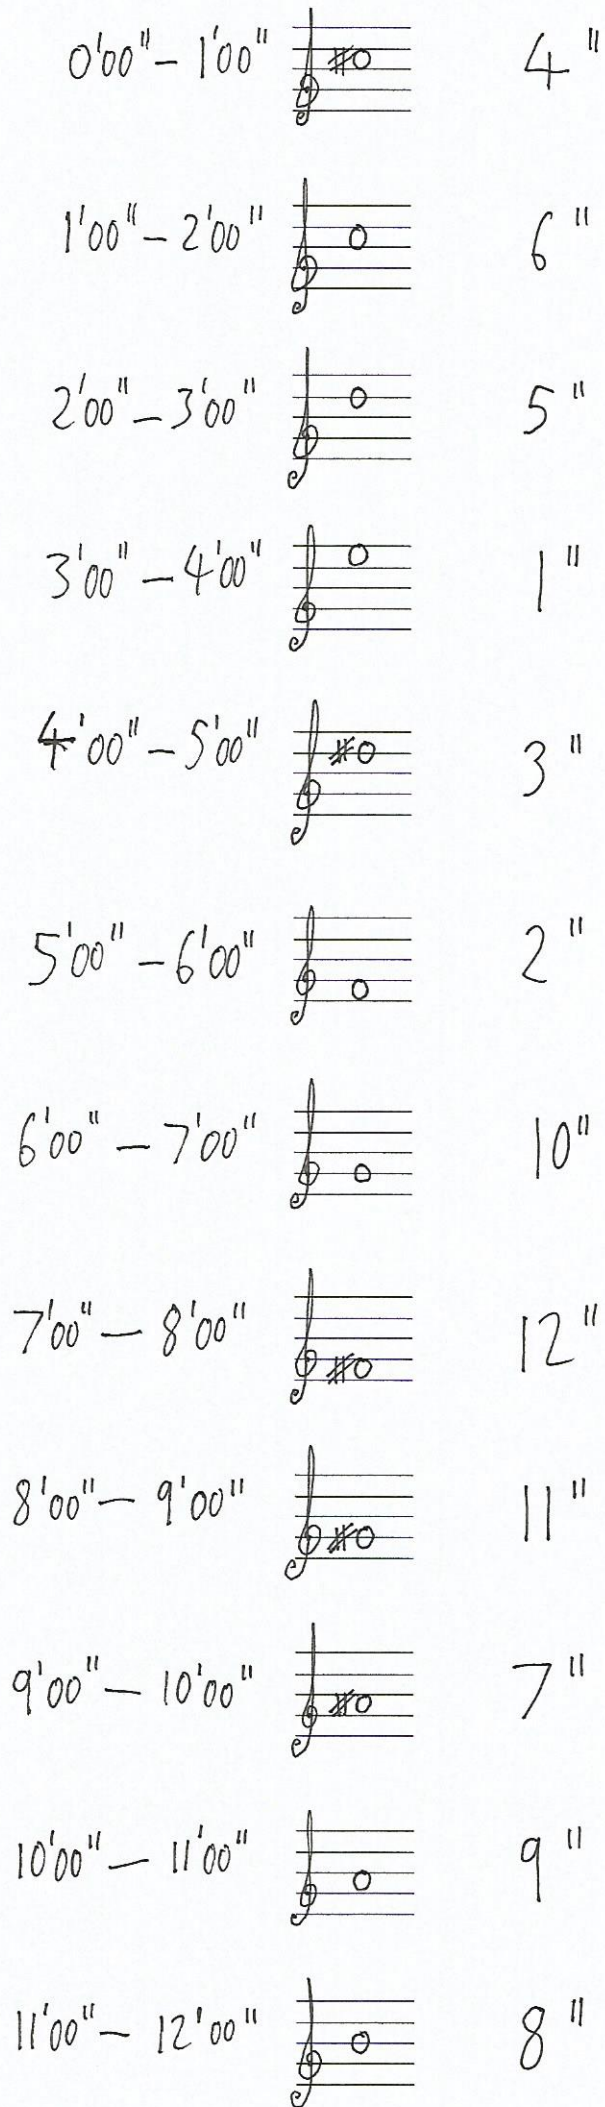 0'00" – 1'00" 4"
1'00" – 2'00" 6"
2'00" – 3'00" 5"
3'00" – 4'00" 1"
4'00" – 5'00" 3"
5'00" – 6'00" 2"
6'00" – 7'00" 10"
7'00" – 8'00" 12"
8'00" – 9'00" 11"
9'00" – 10'00" 7"
10'00" – 11'00" 9"
11'00" – 12'00" 8"